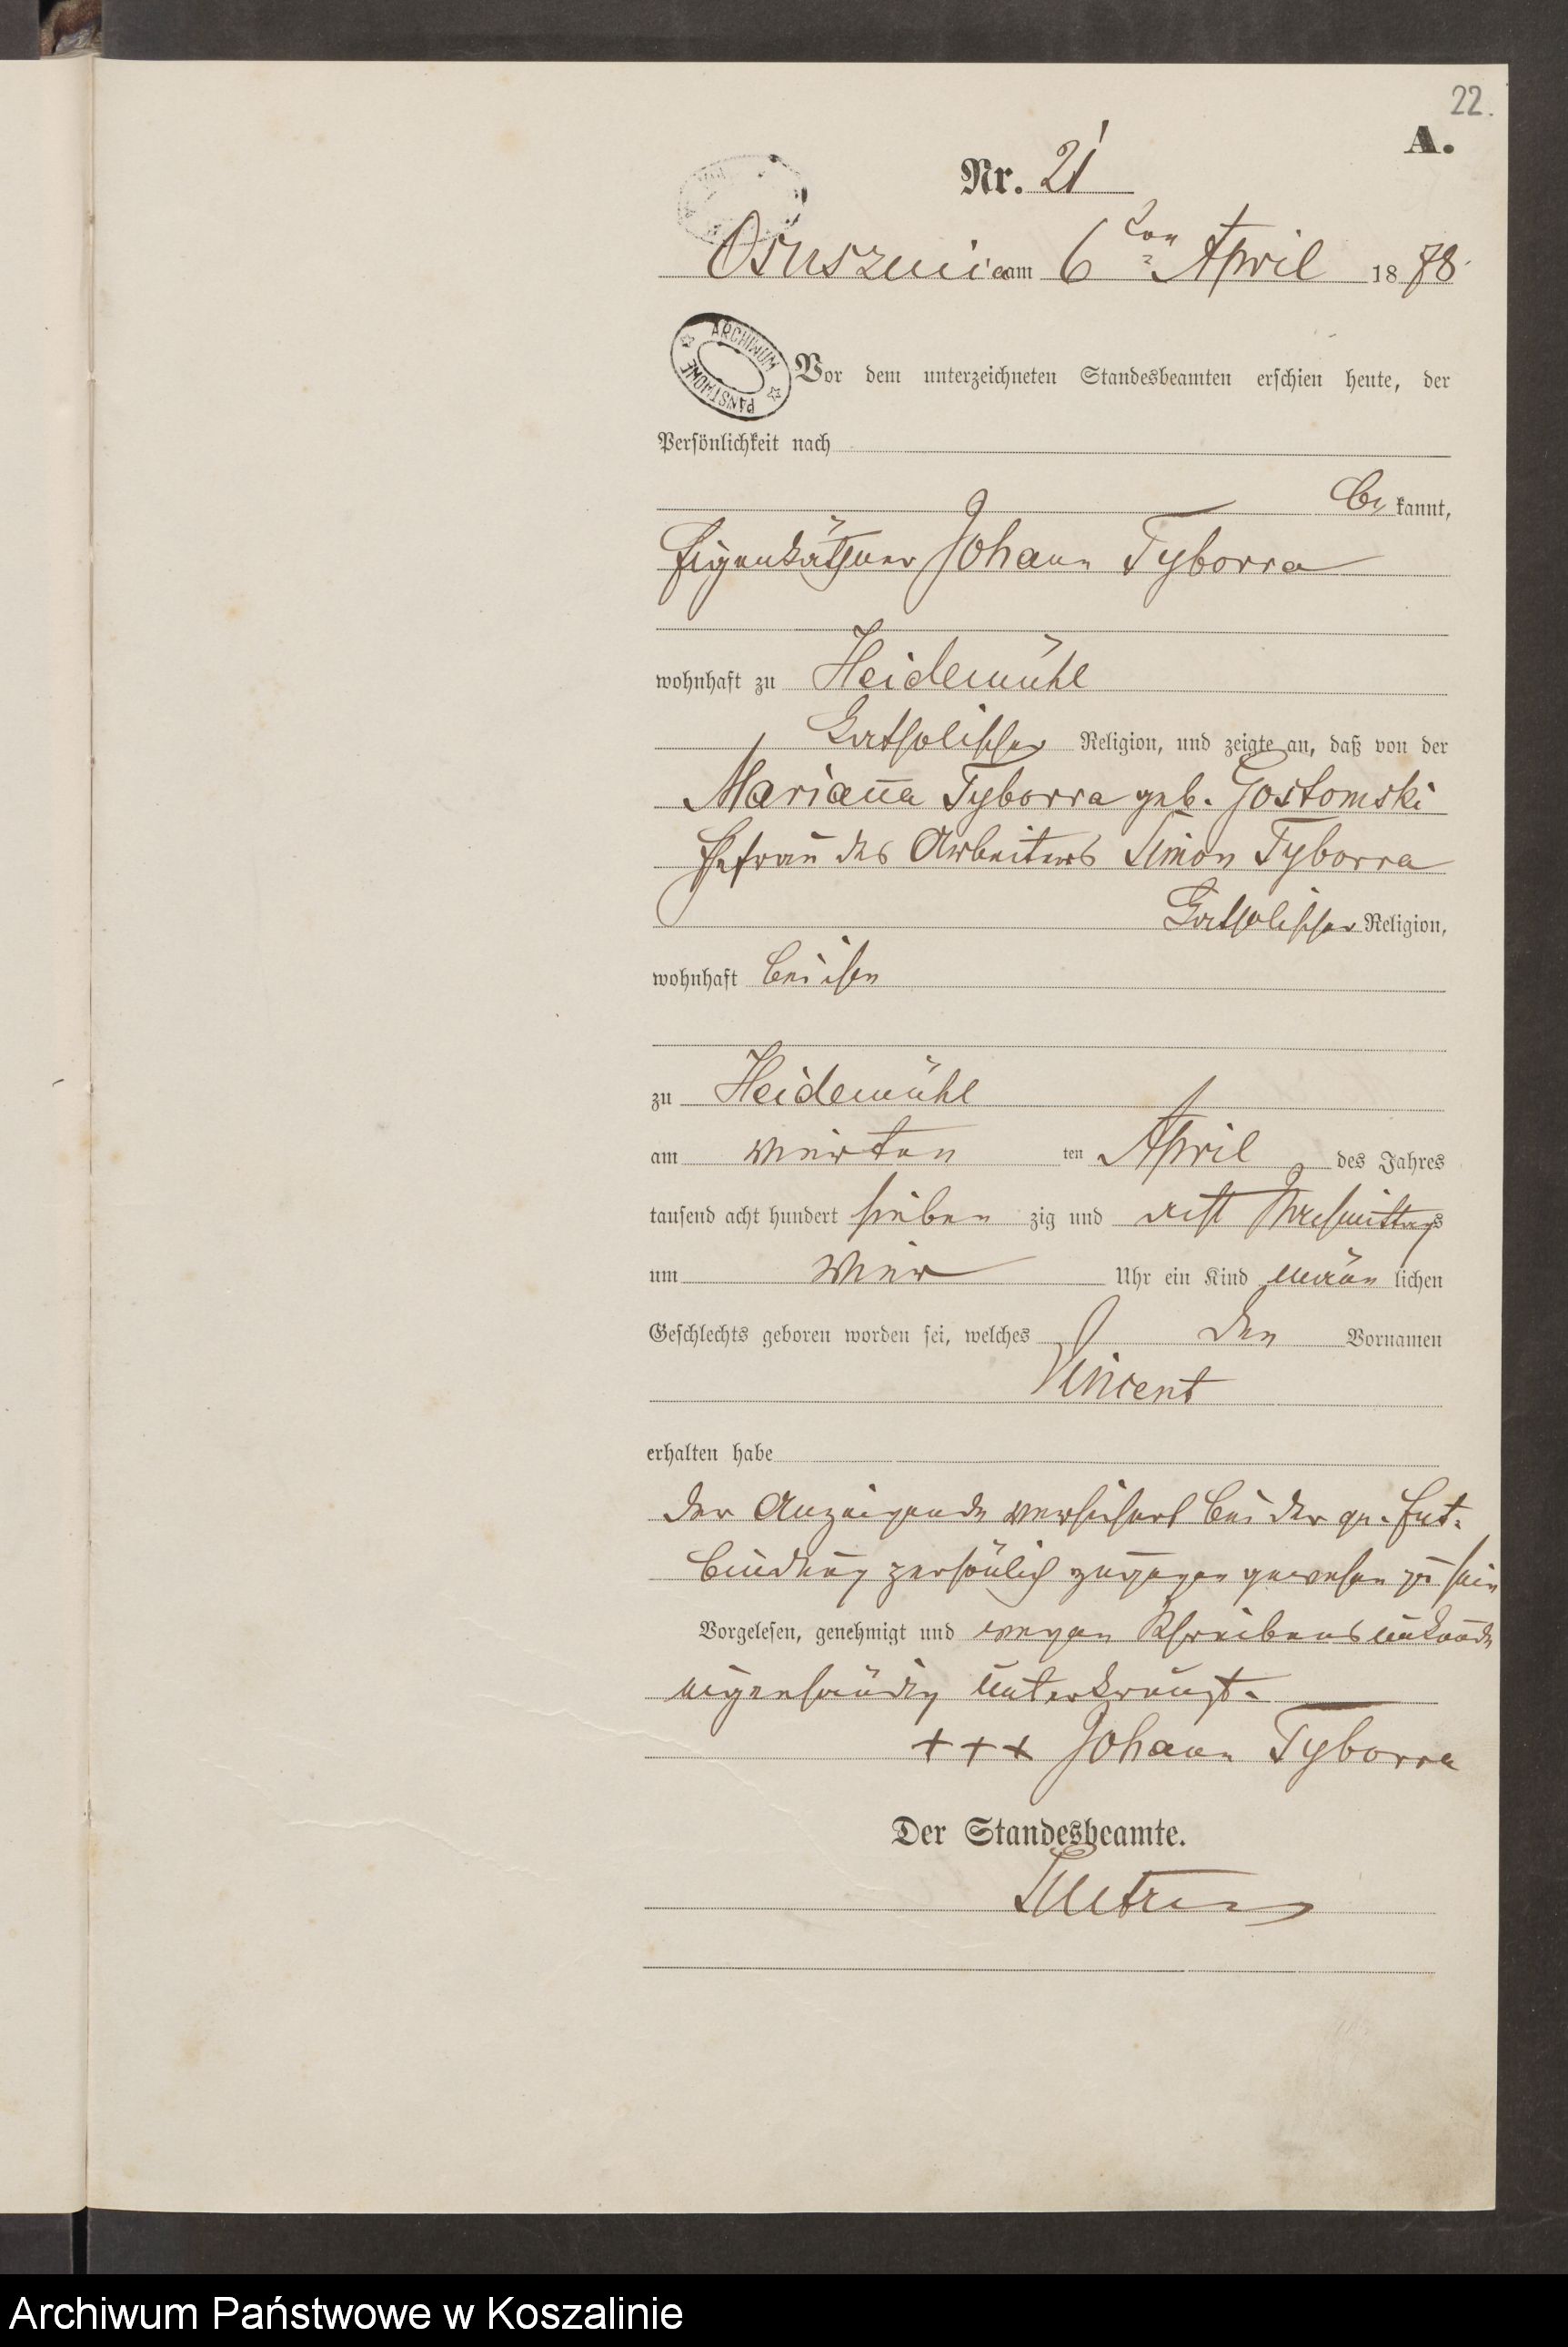 22.
A.
Nr. 21
Osusznica am 6ten April 1878.
ARCHIWUM PAŃSTWOWE
Vor dem unterzeichneten Standesbeamten erschien heute, der
Persönlichkeit nach
bekannt,
Eigenkäthner Johann Tyborra
wohnhaft zu Heidemühl
katholischer Religion, und zeigte an, daß von der
Marianna Tyborra geb. Gostomski
Ehefrau des Arbeiters Simon Tyborra
katholischer Religion,
wohnhaft bei ihm
zu Heidemühl
am vierten ten April des Jahres
tausend acht hundert sieben zig und acht Nachmittags
um vier Uhr ein Kind männlichen
Geschlechts geboren worden sei, welches den Vornamen
Vincent
erhalten habe
der Anzeigende versichert bei der qu. Ent-
bindung persönlich zugegen gewesen zu sein
Vorgelesen, genehmigt und wegen Schreibensunkunde
eigenhändig unterkreuzt.
+++ Johann Tyborra
Der Standesbeamte.
Archiwum Państwowe w Koszalinie